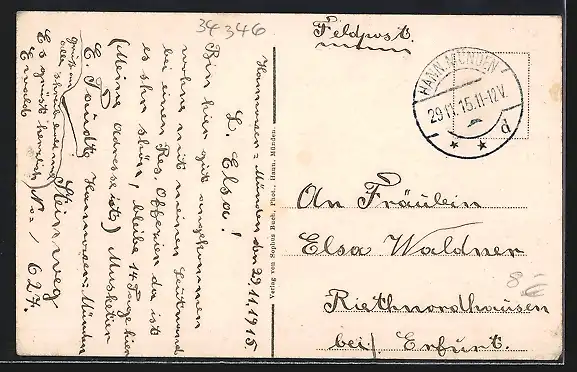 34346
Feldpost.
HANN. MÜNDEN
29.11.15.11-12V.
* * d
Hannover-Münden den 29.11.1915.
L. Elsa!
Bin hier gut angekommen
wohne mit meinen Leutnand
bei einen Res. Offezier da ist
es sehr schön, bleibe 14 Tage hier
(Meine Adresse ist) Musketier
E. Taudt Hannover-Münden
Steinweg
No. 627.
Es grüßt herzlich
Ewald
Verlag von Sophus Buch, Phot., Hann. Münden.
An Fräulein
Elsa Waldner
Riethnordhausen
bei/ Erfurt.